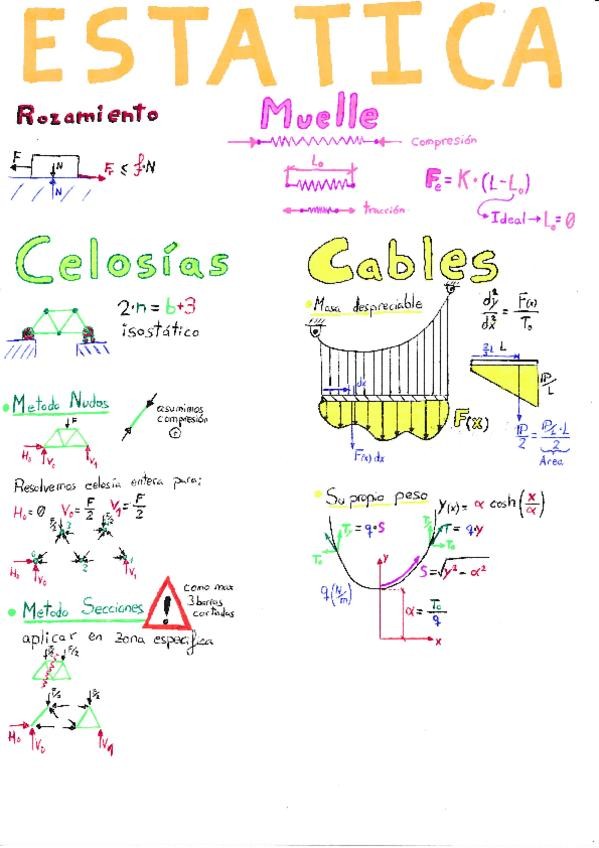 ESTATICA
Rozamiento
F
N
N
Fr ≤ f·N
Muelle
Compresión
L₀
tracción
Fe = K·(L-L₀)
Ideal → L₀ = 0
Celosías
2·n = b+3
isostático
Metodo Nudos
F
H₀
V₀
V₁
asumimos
compresión
Resolvemos celosía entera para:
H₀=0 V₀=F/2 V₁=F/2
H₀
V₀
Metodo Secciones
!
como max
3 barras
cortadas
aplicar en zona especifica
F/2
F/2
H₀
V₀
Cables
Masa despreciable
dy²/dx² = F(x)/T₀
dx
F(x)
F(x)dx
2/3 L
P/L
P/2 = P/L·L/2
Area
Su propio peso
y(x) = α cosh(x/α)
Ty = q·s
T₀
T = q·y
T₀
S = √y²-α²
q(N/m)
y
x
α = T₀/q